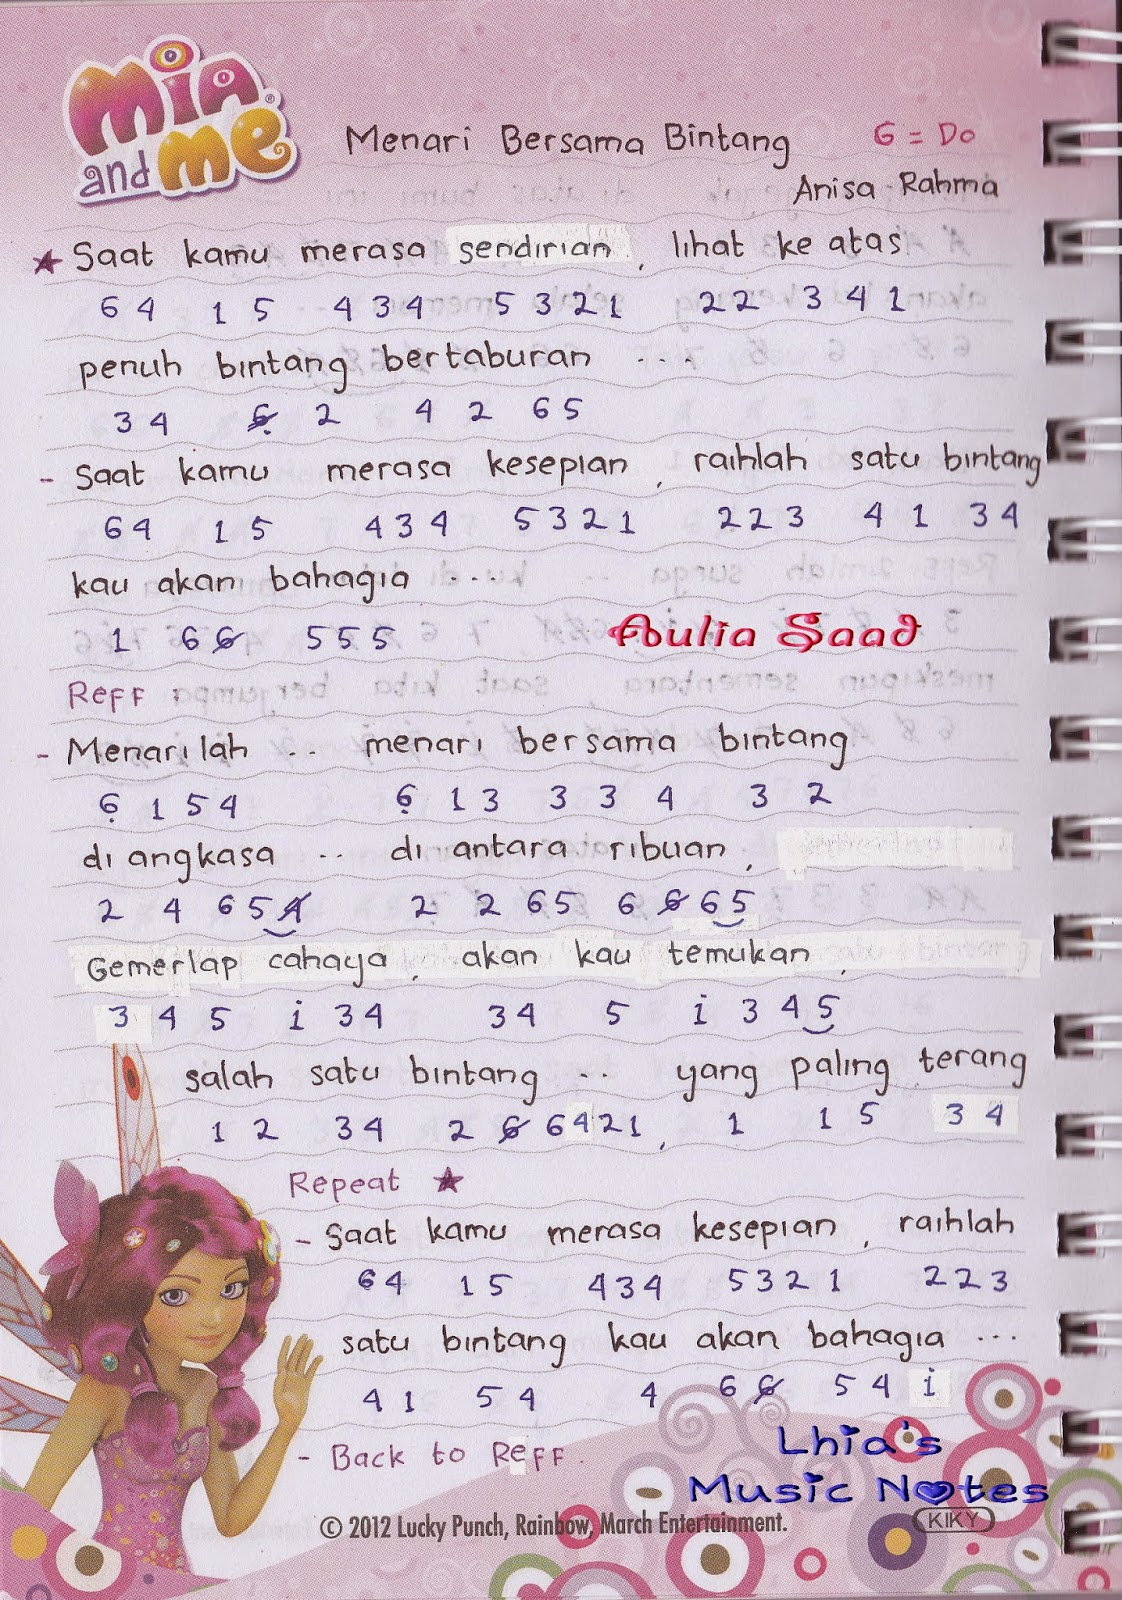 mia and me®
Menari Bersama Bintang G = Do
Anisa Rahma
★ Saat kamu merasa sendirian, lihat ke atas
6 4 1 5 4 3 4 5 3 2 1 2 2 3 4 1
penuh bintang bertaburan ...
3 4 6̣ 2 4 2 6 5
- Saat kamu merasa kesepian, raihlah satu bintang
6 4 1 5 4 3 4 5 3 2 1 2 2 3 4 1 3 4
kau akan bahagia ...
1 6 6 5 5 5
Aulia Saad
Reff :
- Menarilah .. menari bersama bintang
6̣ 1 5 4 6̣ 1 3 3 3 4 3 2
di angkasa .. di antara ribuan,
2 4 6 5 4 2 2 6 5 6 6 6 5
Gemerlap cahaya, akan kau temukan,
3 4 5 i 3 4 3 4 5 i 3 4 5
salah satu bintang .. yang paling terang
1 2 3 4 2 6 6 4 2 1, 1 1 5 3 4
Repeat ★
- Saat kamu merasa kesepian, raihlah
6 4 1 5 4 3 4 5 3 2 1 2 2 3
satu bintang kau akan bahagia ...
4 1 5 4 4 6 6 5 4 i
- Back to Reff.
Lhia's
Music Notes
© 2012 Lucky Punch, Rainbow, March Entertainment. KIKY